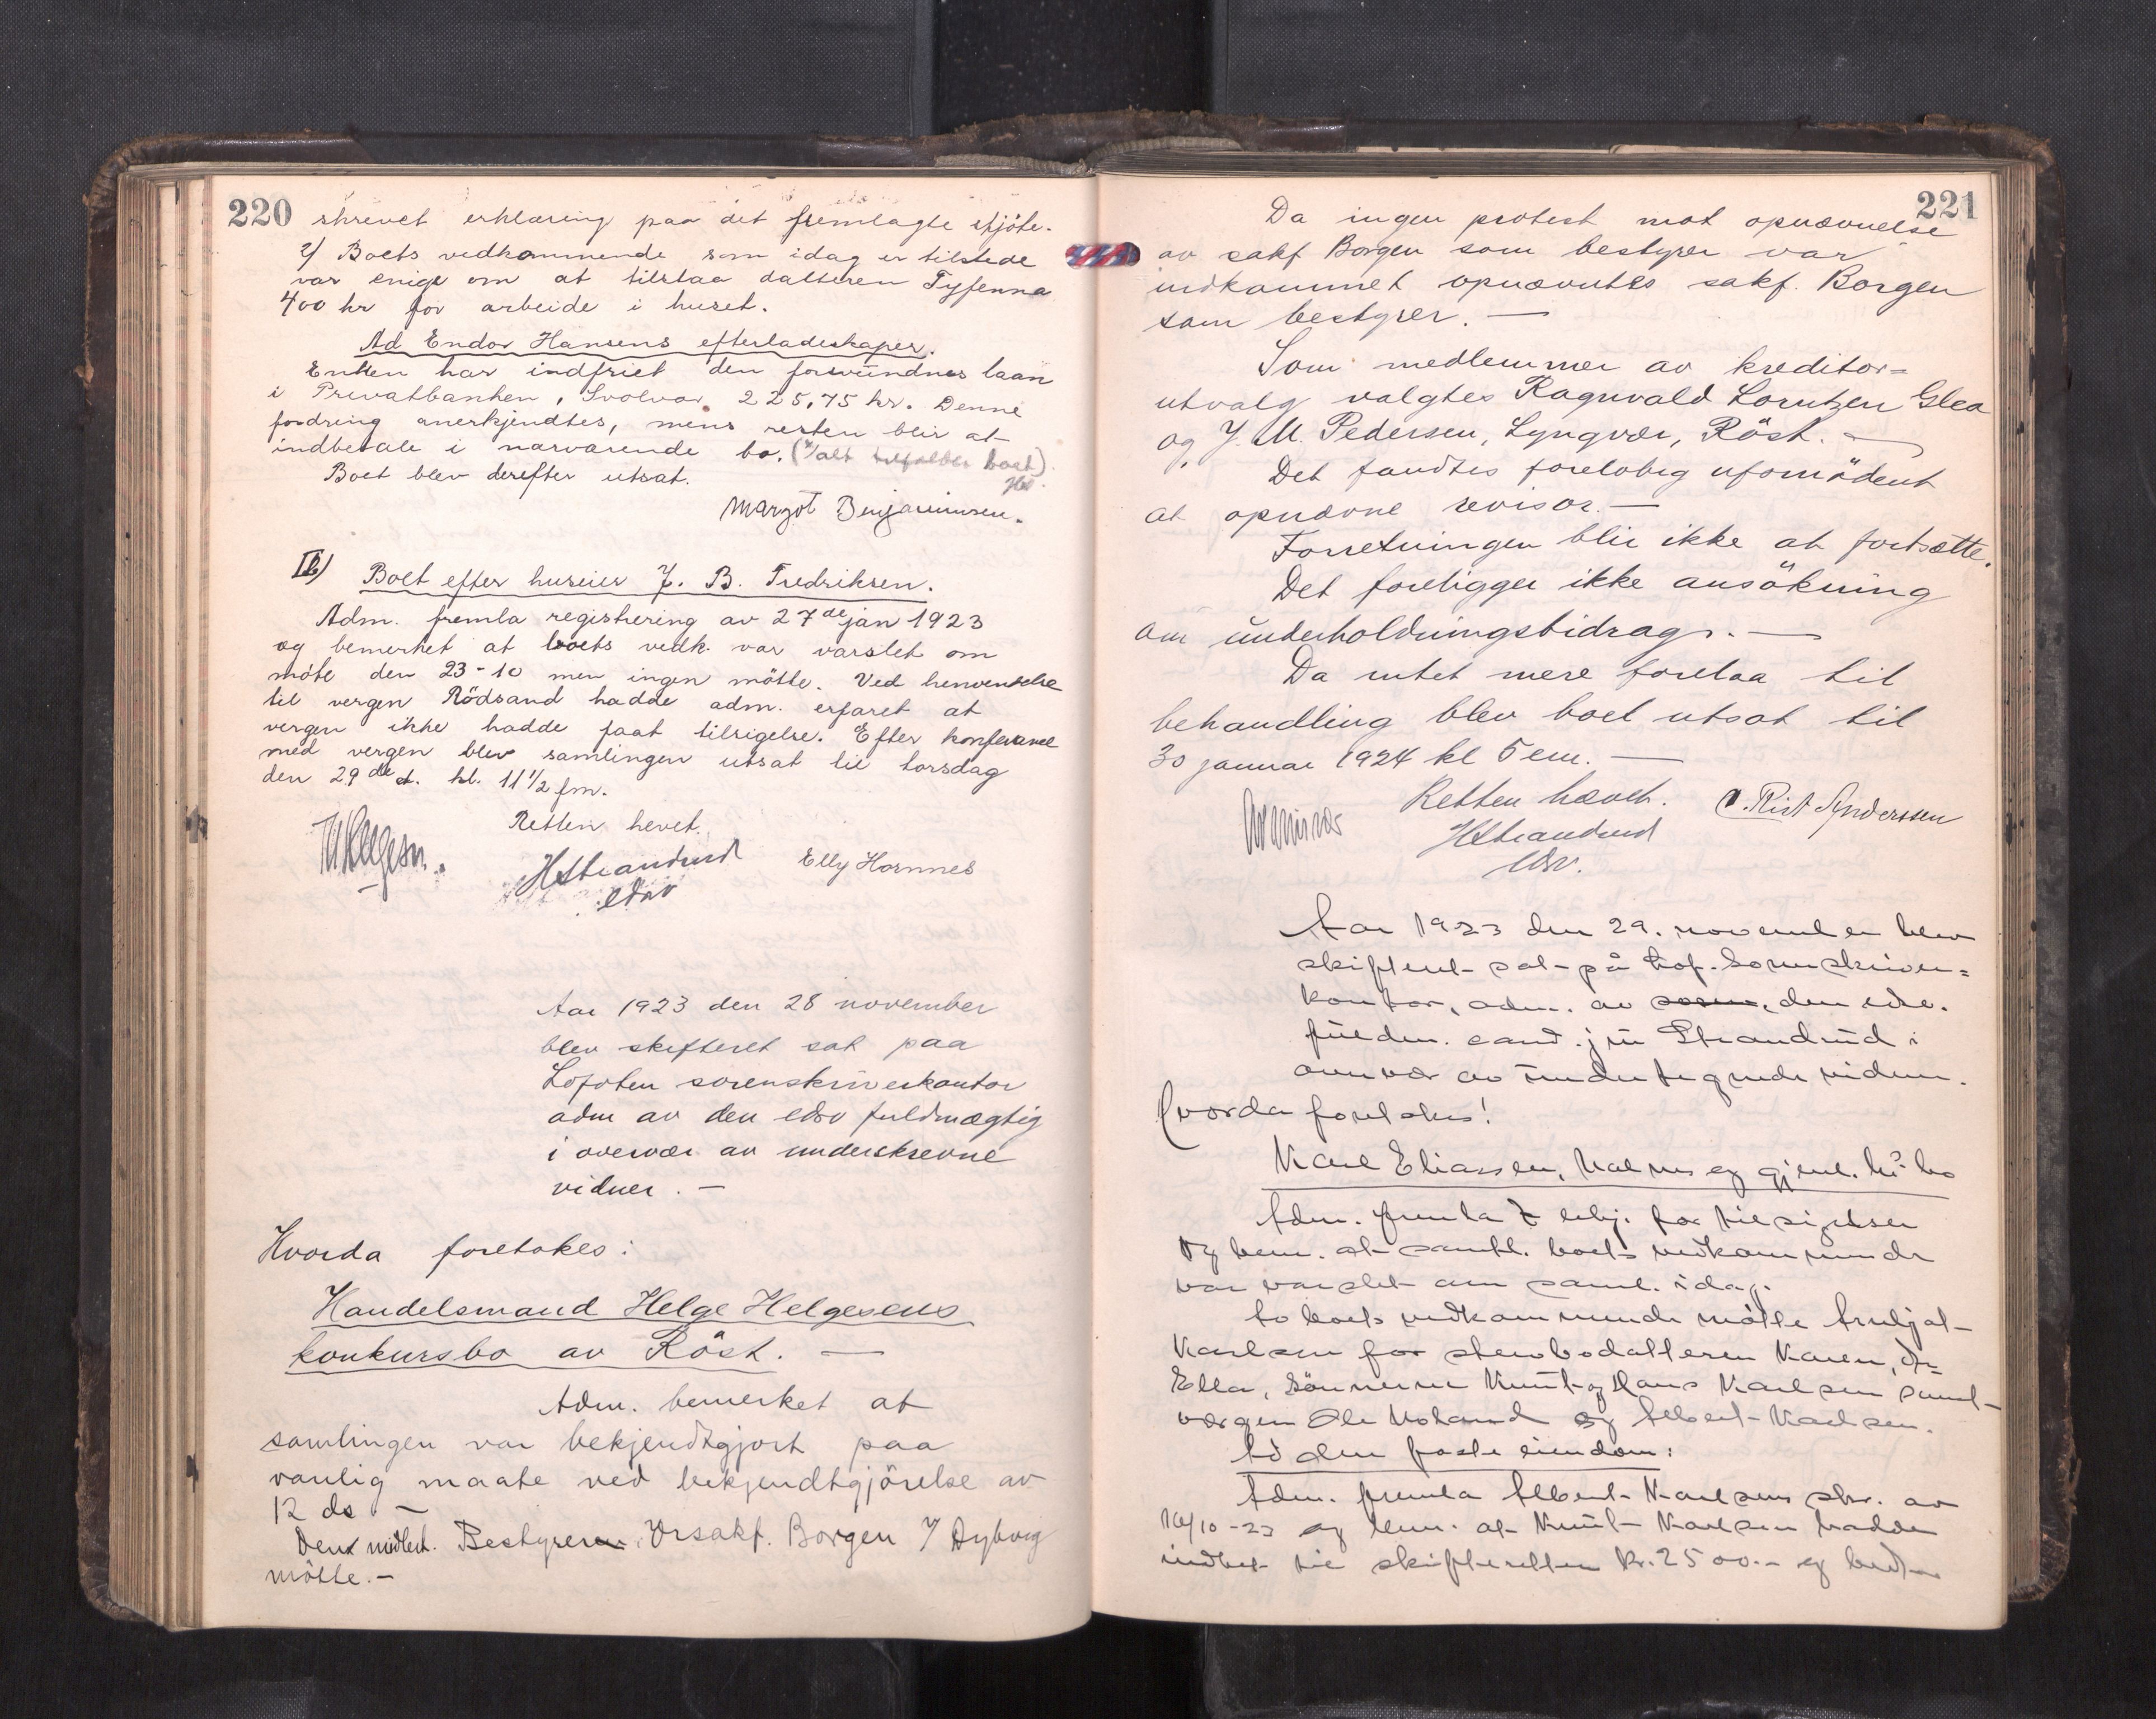 220
skrevet erklæring paa det fremlagte skjöte.
2/ Boets vedkommende som idag er tilstede
var enige om at tilstaa datteren Tyfenna
400 kr for arbeide i huset.
Ad Endor Hansens efterladeskaper.
Enken har indfriet den forsvundnes laan
i Privatbanken, Svolvær, 225,75 kr. Denne
fordring anerkjendtes, mens resten blir at
indbetale i nærværende bo. (alt tilfalder boet)
Boet blev derefter utsat.
Margot Benjaminsen.
II) Boet efter huseier J. B. Fredriksen.
Adm. fremla registrering av 27de jan 1923
og bemerket at boets vedk. var varslet om
möte den 23-10 men ingen mötte. Ved henvendelse
til vergen Rödsand hadde adm. erfaret at
vergen ikke hadde faat tilsigelse. Efter konferanse
med vergen blev samlingen utsat til torsdag
den 29de d. kl. 11 1/2 fm.
Retten hevet.
HStrandrud
edsv
Elly Hornnes
Aar 1923 den 28 november
blev skifteret sat paa
Lofoten sorenskriverkontor
adm av den edsv fuldmægtig
i overvær av underskrevne
vidner. —
Hvorda foretokes:
Handelsmand Helge Helgesens
konkursbo av Röst. —
Adm. bemerket at
samlingen var bekjendtgjort paa
vanlig maate ved bekjendtgjörelse av
12 ds —
Den midlert. Bestyreren Orsakf. Borgen / Dybvig
mötte. —
221
Da ingen protest mot opnævnelse
av sakf Borgen som bestyrer var
indkommet opnævntes sakf. Borgen
som bestyrer. —
Som medlemmer av kreditor=
utvalg valgtes Ragnvald Lorntzen Glea
og J. M. Pedersen, Lyngvær, Röst. —
Det fandtes forelöbig ufornödent
at opnævne revisor. —
Forretningen blir ikke at fortsætte.
Det foreligger ikke ansökning
om underholdningsbidrag. —
Da intet mere forelaa til
behandling blev boet utsat til
30 januar 1924 kl 5 em. —
Retten hævet.
HStrandrud
edsv.
C. Rist Anderssen
Aar 1923 den 29. november blev
skifteret sat på Lof. sorenskriver=
kontor, adm. av soren, den edsv.
fuldm. cand. jur Strandrud i
overvær av undertegnede vidner.
Hvorda foretokes!
Karl Eliassen, Kalnes og gjenl. hs bo
Adm. fremla 7 erkj. for tilsigelser
og bem. at samtl. boets vedkommende
var varslet om saml. idag.
Av boets vedkommende mötte
Karlsen for stevbodatteren Karen,
Ella, sönnerne Knut og Hans Karlsen samt
værgen Ole og Albert Karlsen.
Ad den faste eiendom:
Adm. fremla Albert Karlsens skr. av
16/10-23 og bem. at Knut Karlsen hadde
indbet til skifteretten kr. 2500.- og